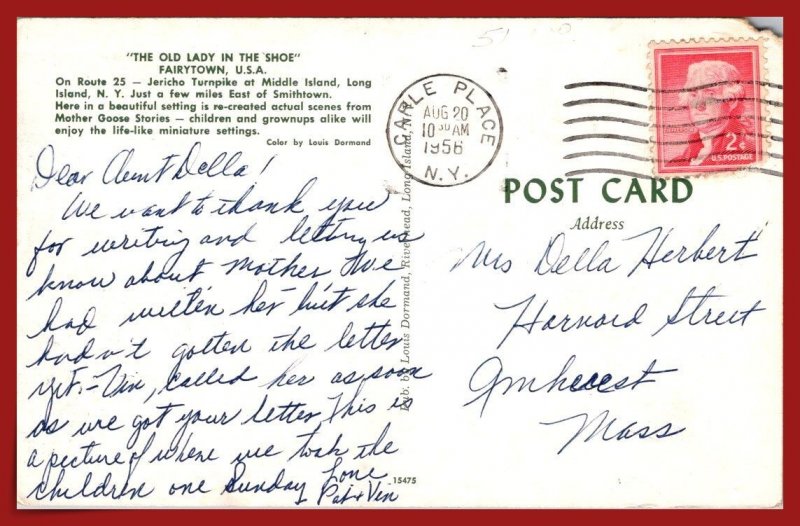 "THE OLD LADY IN THE SHOE"
FAIRYTOWN, U.S.A.
On Route 25 — Jericho Turnpike at Middle Island, Long
Island, N. Y. Just a few miles East of Smithtown.
Here in a beautiful setting is re-created actual scenes from
Mother Goose Stories — children and grownups alike will
enjoy the life-like miniature settings.
Color by Louis Dormand
Dear Aunt Della!
We want to thank you
for writing and letting us
know about Mother. We
had written her but she
hadn't gotten the letter
yet. - Vin, called her as soon
as we got your letter. This is
a picture of where we took the
children one Sunday Love
Pat & Vin
Pub. by Louis Dormand, Riverhead, Long Island, N.Y.
15475
CARLE PLACE
AUG 20
10 30 AM
1956
N.Y.
2¢
U.S. POSTAGE
POST CARD
Address
Mrs Della Herbert
Harvard Street
Amherst
Mass